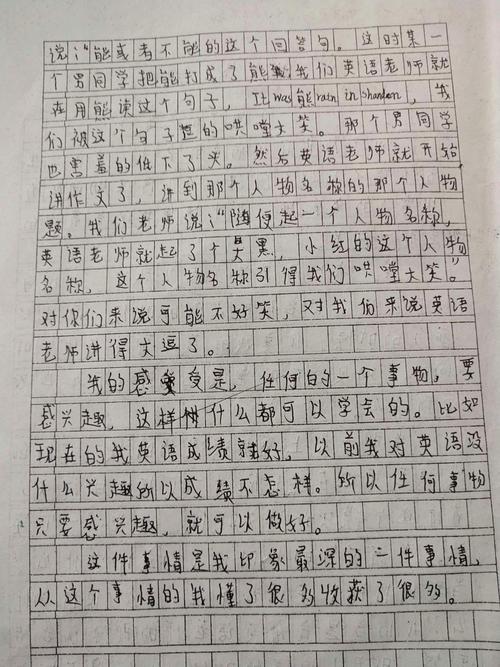 说："能或者不能的这个回答句。这时某一
个男同学把能打成了熊，我们英语老师就
在用熊读这个句子，It was熊rain in shandon，我
们被这个句子逗的哄堂大笑。那个男同学
也害羞的低下了头。然后英语老师就开始
讲作文了，讲到那个人物名称的那个人物
题。我们老师说："随便起一个人物名称，
英语老师就起了个吴黑，小红的这个人物
名称，这个人物名称引得我们哄堂大笑。"
对你们来说可能不好笑，对我们来说英语
老师讲得太逗了。
我的感受是，任何的一个事物，要
感兴趣，这样什么都可以学会的。比如
现在的我英语成绩就好，以前我对英语没
什么兴趣所以成绩不怎样。所以任何事物
只要感兴趣，就可以做好。
这件事情是我印象最深的一件事情，
从这个事情的我懂了很多收获了很多。